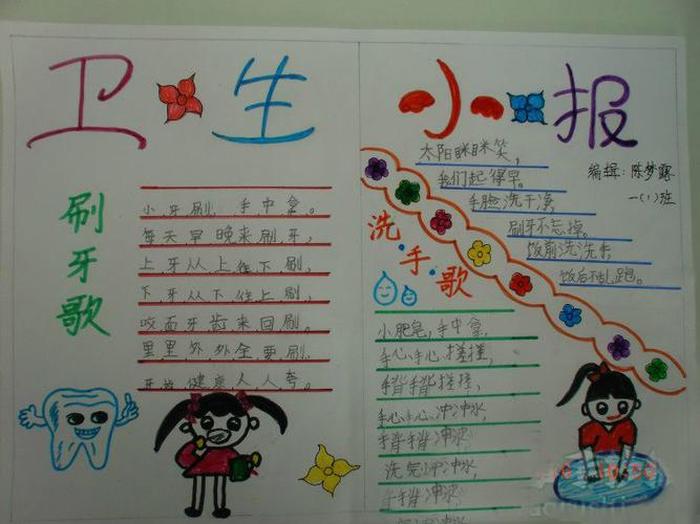 卫生小报
编辑:陈梦露
一(1)班
刷牙歌
小牙刷,手中拿。
每天早晚来刷牙,
上牙从上往下刷,
下牙从下往上刷,
咬面牙齿来回刷。
里里外外全要刷,
健康人人夸。
太阳眯眯笑,
我们起得早。
手脸洗干净,
刷牙不忘掉。
饭前洗洗手,
饭后不乱跑。
洗手歌
小肥皂,手中拿,
手心手心搓搓搓,
手背手背搓搓,
手心手心冲冲水,
手背手背冲水,
洗完冲冲水,
手背冲水